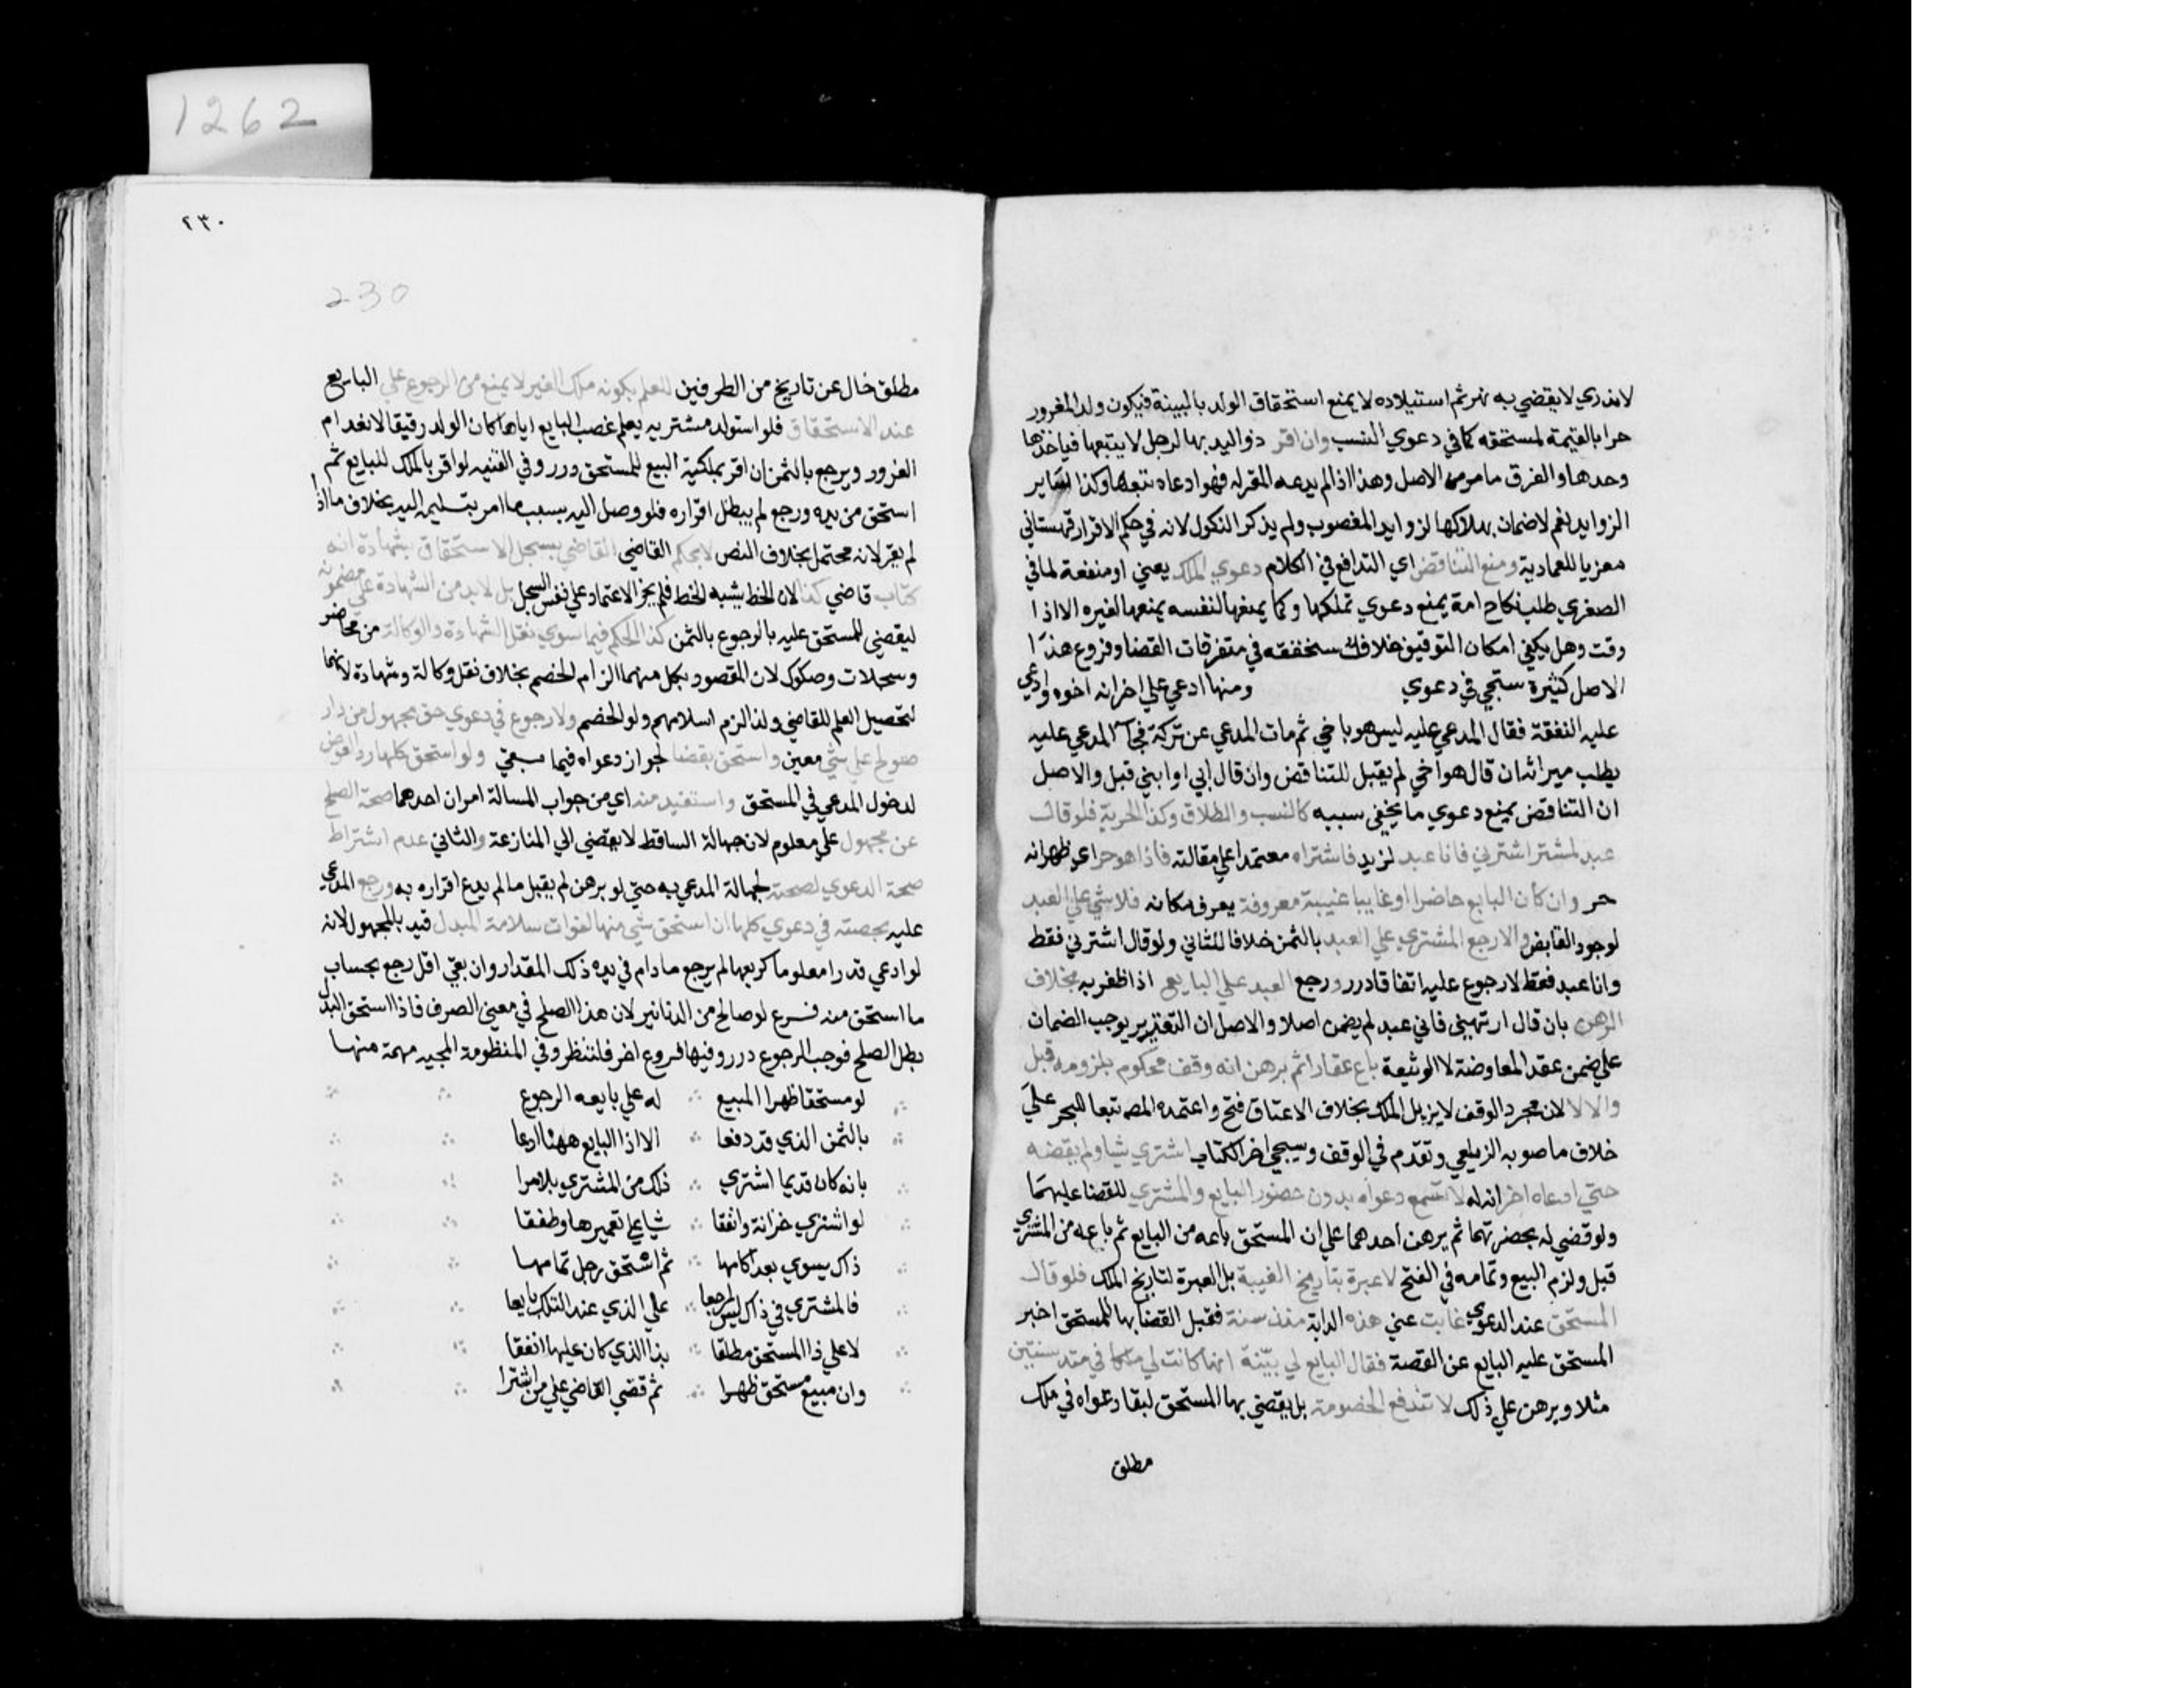 لا ندري لا يقضي به نهر ثم استيلاده لا يمنع استحقاق الولد بالبينة فيكون ولد المغرور
حرا بالقيمة لمستحقه كما في دعوي النسب وان اقر ذو اليد بها لرجل لا يتبعها فياخذها
وحدها والفرق ما مر من الاصل وهذا اذا لم يدعه المقر له فلو ادعاه تبعها وكذا ساير
الزوايد نعم لا ضمان بهلاكها لزوايد المغصوب ولم يذكر النكول لانه في حكم الاقرار قهستاني
معزيا للعمادية ومنع التناقض اي التدافع في الكلام دعوي الملك يعني او منفعة لما في
الصغري طلب نكاح امة يمنع دعوي تملكها وكما يمنعها لنفسه يمنعها لغيره الا اذا
وفق وهل يكفي امكان التوفيق خلاف سنحققه في متفرقات القضا وفروع هذا
الاصل كثيرة ستجي في دعوي ومنها ادعي علي اخر انه اخوه وادعي
عليه النفقة فقال المدعي عليه ليس هو باخي ثم مات المدعي عن تركة فجا المدعي عليه
يطلب ميراثه ان قال هو اخي لم يقبل للتناقض وان قال ابي او ابني قبل والاصل
ان التناقض يمنع دعوي ما يخفي سببه كالنسب والطلاق وكذا الحرية فلو قال
عبد لمشتر اشترني فانا عبد لزيد فاشتراه معتمدا علي مقالته فاذا هو حر اي ظهر انه
حر وان كان البايع حاضرا او غايبا غيبة معروفة يعرف مكانه فلا شي علي العبد
لوجود القابض والا رجع المشتري علي العبد بالثمن خلافا للثاني ولو قال اشترني فقط
وانا عبد فقط لا رجوع عليه اتفاقا درر ورجع العبد علي البايع اذا ظفر به بخلاف
الرهن بان قال ارتهني فاني عبد لم يضمن اصلا والاصل ان التغرير يوجب الضمان
علي ضمن عقد المعاوضة لا الوثيقة باع عقارا ثم برهن انه وقف محكوم بلزومه قبل
والا لا لان مجرد الوقف لا يزيل الملك بخلاف الاعتاق فتح واعتمده المص تبعا للبحر علي
خلاف ما صوبه الزيلعي وتقدم في الوقف وسيجي اخر الكتاب اشتري شيا ولم يقبضه
حتي ادعاه اخر انه له لا تسمع دعواه بدون حضور البايع والمشتري للقضا عليهما
ولو قضي له بحضرتهما ثم برهن احدهما علي ان المستحق باعه من البايع ثم باعه من المشتري
قبل ولزم البيع وتمامه في الفتح لا عبرة بتاريخ الغيبة بل العبرة لتاريخ الملك فلو قال
المستحق عند الدعوي غابت عني هذه الدابة منذ سنة فقبل القضا بها للمستحق اخبر
المستحق عليه البايع عن القصة فقال البايع لي بينة انها كانت لي ملكا في منذ سنتين
مثلا وبرهن علي ذلك لا تندفع الخصومة بل يقضي بها للمستحق لبقا دعواه في ملك
مطلق
1262
٢٣٠
230
مطلق خال عن تاريخ من الطرفين للعلم بكونه ملك الغير لا يمنع من الرجوع علي البايع
عند الاستحقاق فلو استولد مشتريه يعلم غصب البايع اياها كان الولد رقيقا لانعدام
الغرور ويرجع بالثمن ان اقر بملكية البيع للمستحق درر وفي القنيه لو اقر بالملك للبايع ثم
استحق من يده ورجع لم يبطل اقراره فلو وصل اليه بسبب ما امر بتسليمه اليه بخلاف ما اذا
لم يقر لانه محتمل بخلاف النص لا يحكم القاضي القاضي بسجل الاستحقاق بشهادة انه
كتاب قاضي كذا لان الخط يشبه الخط فلم يجز الاعتماد علي نفس السجل بل لا بد من الشهادة علي مضمونه
ليقضي للمستحق عليه بالرجوع بالثمن كذا الحكم فيما سوي نقل الشهادة والوكالة من محاضر
وسجلات وصكوك لان المقصود بكل منهما الزام الخصم بخلاف نقل وكالة وشهادة لانهما
لتحصيل العلم للقاضي ولذا لزم اسلامهم ولو الخصم ولا رجوع في دعوي حق مجهول من دار
صولح علي شي معين واستحق بقضا لجواز دعواه فيما بقي ولو استحق كلها رد العوض
لدخول المدعي في المستحق واستفيد منه اي من جواب المسالة امران احدهما صحة الصلح
عن مجهول علي معلوم لان جهالة الساقط لا تفضي الي المنازعة والثاني عدم اشتراط
صحة الدعوي لصحته لجهالة المدعي به حتي لو برهن لم يقبل ما لم يدع اقراره به ورجع المدعي
عليه بحصته في دعوي كلها ان استحق شي منها لفوات سلامة المبدل قيد بالمجهول لانه
لو ادعي قدرا معلوما كربعها لم يرجع ما دام في يده ذلك المقدار وان بقي اقل رجع بحساب
ما استحق منه فرع لو صالح من الدنانير لان هذا الصلح في معني الصرف فاذا استحق البدل
بطل الصلح فوجب الرجوع درر وفيها فروع اخر فلتنظر وفي المنظومة المحبيه مهمة منها
لو مستحقا ظهر المبيع له علي بايعه الرجوع
بالثمن الذي قد دفعا الا اذا البايع ههنا ادعا
بانه كان قديما اشتري ذلك من المشتري بلا مرا
لو اشتري خرابة وانفقا شيا علي تعميرها وطفقا
ذاك يسوي بعد اكامها ثم استحق رجل تمامها
فالمشتري في ذاك ليس راجعا علي الذي عند التلك بايعا
لا علي ذا المستحق مطلقا بذا الذي كان عليها انفقا
وان مبيع مستحق ظهرا ثم قضي القاضي علي من اشترا